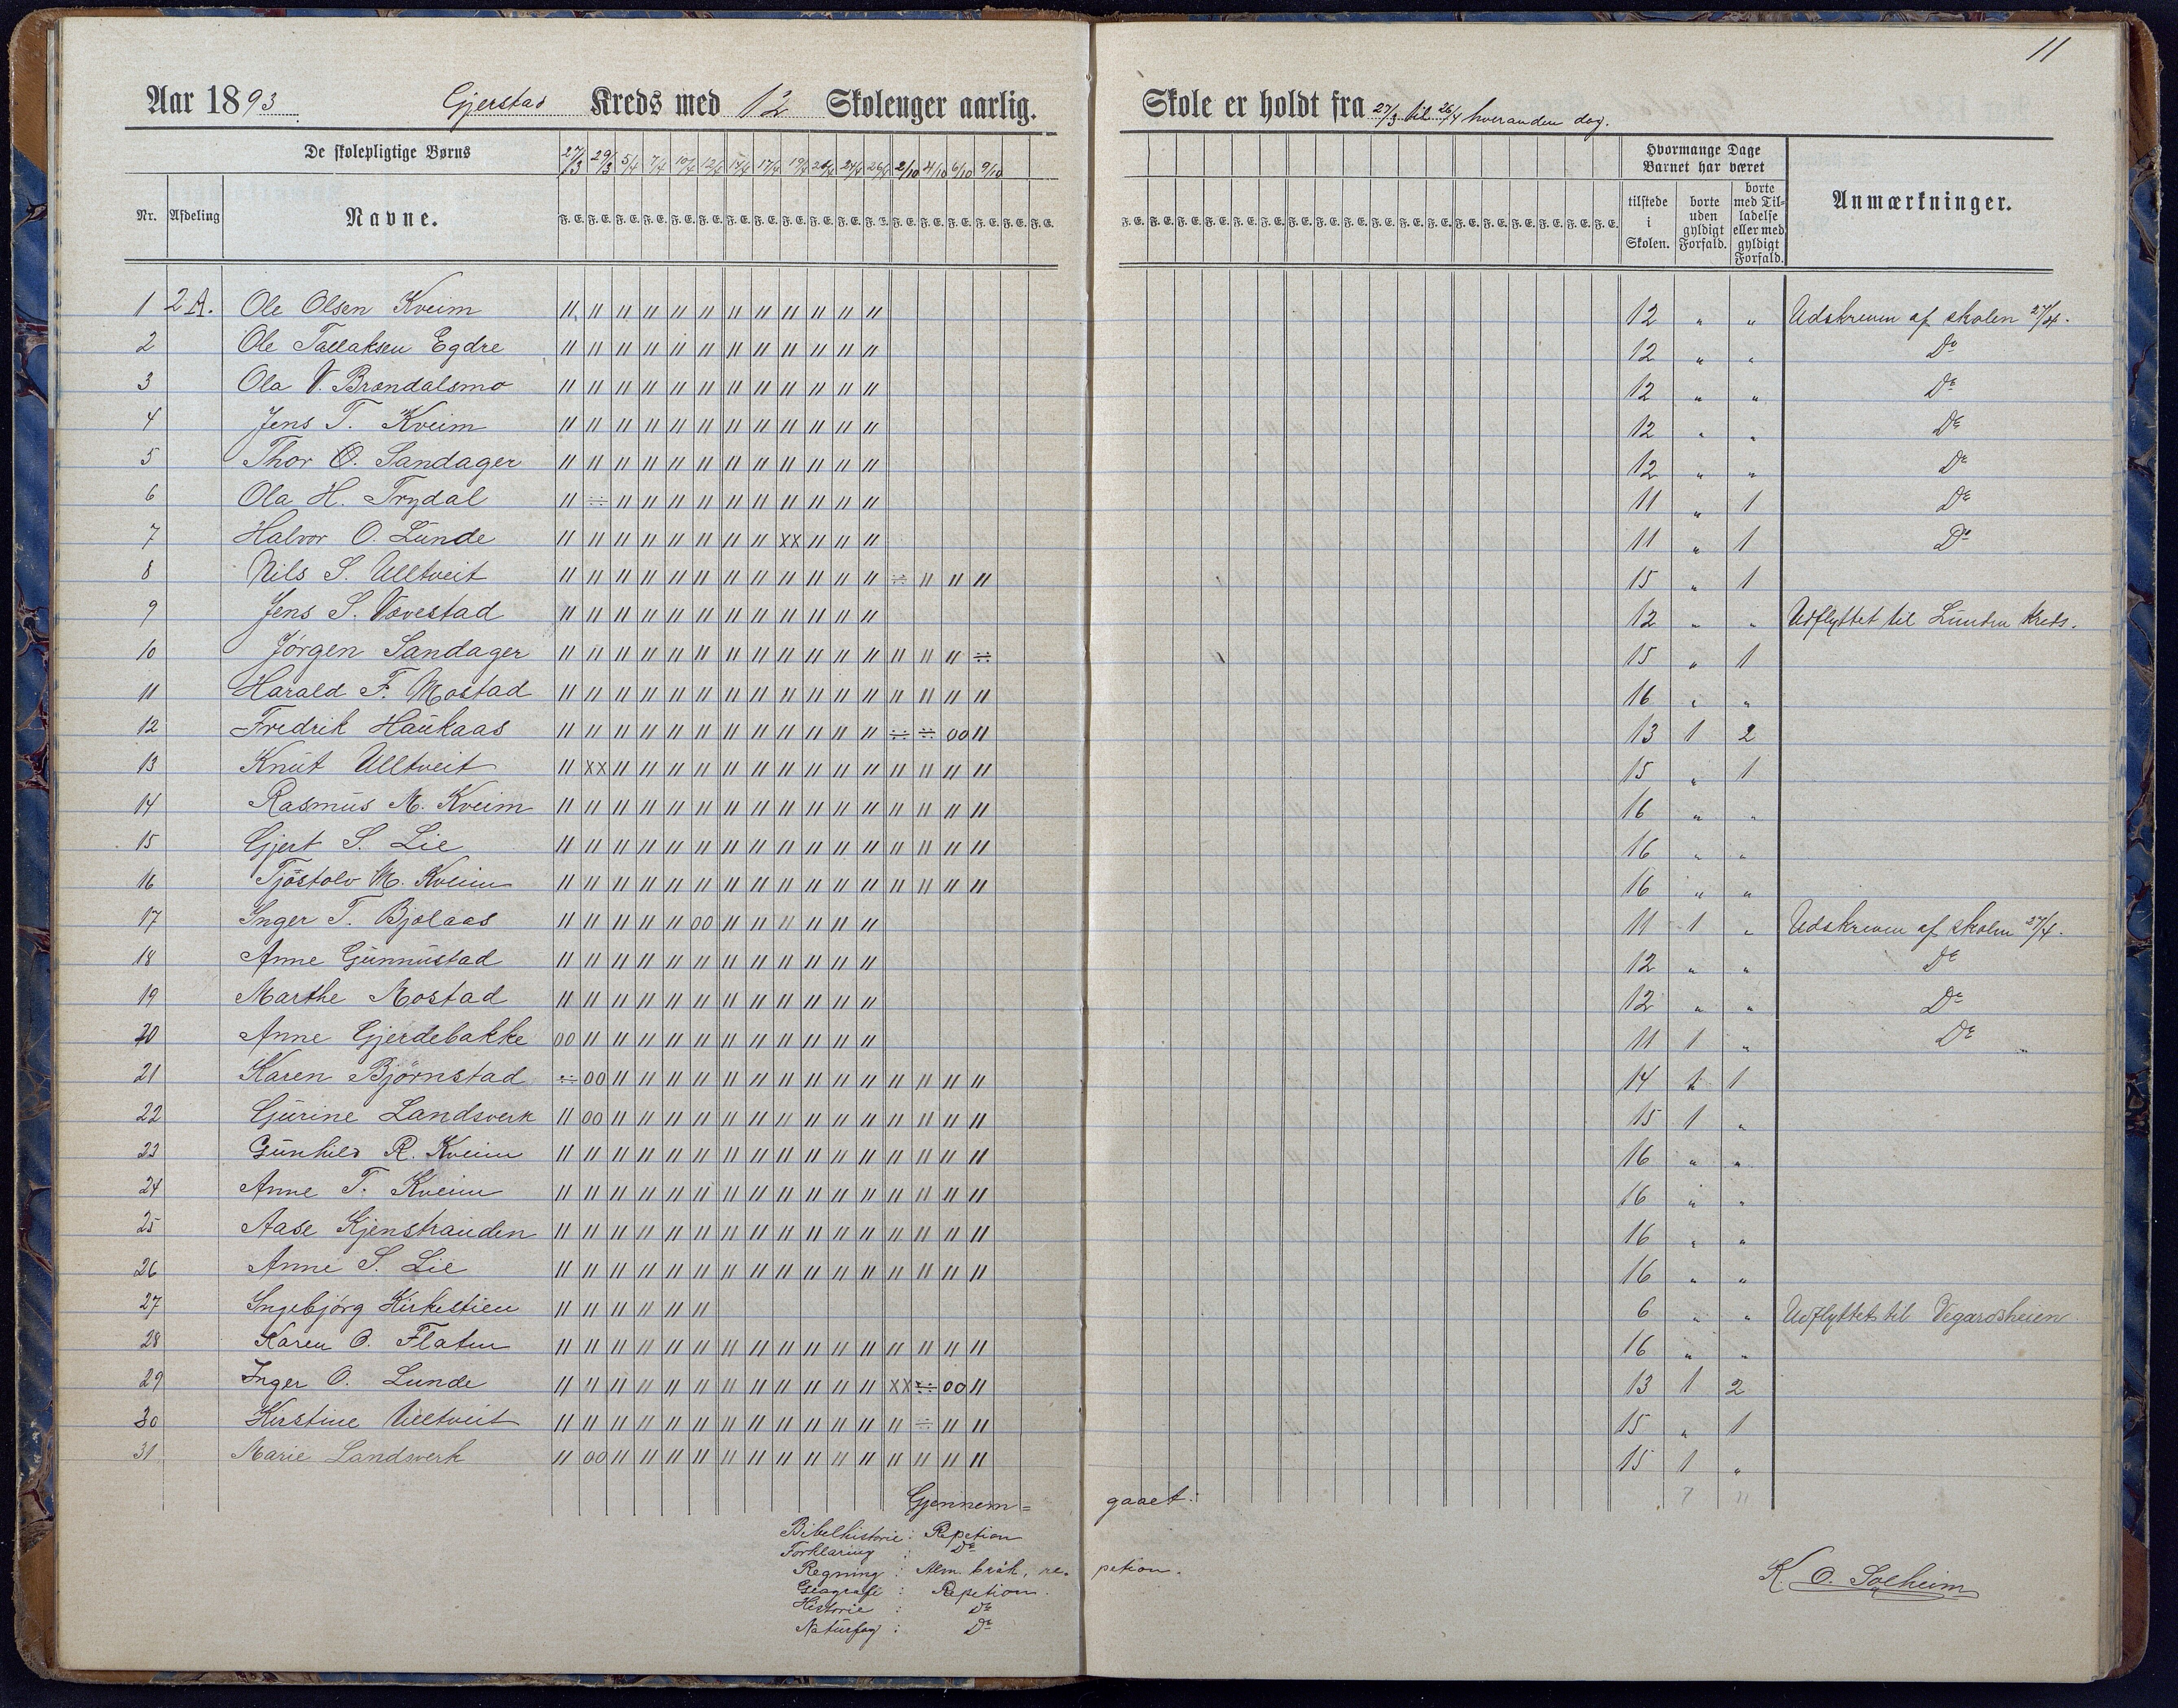 11
Aar 1893. Gjerstad Kreds med 12 Skoleuger aarlig. Skole er holdt fra 27/3 til 26/4 hveranden dag.
De skolepligtige Børns 27/3 29/3 5/4 7/4 10/4 12/4 14/4 17/4 19/4 24/4 26/4 2/10 4/10 6/10 9/10 Hvormange Dage Barnet har været
Nr. Afdeling Navne. F. E. tilstede i Skolen. borte uden gyldigt Forfald. borte med Tilladelse eller med gyldigt Forfald. Anmærkninger.
1 2 A. Ole Olsen Kveim 〃 〃 〃 〃 〃 〃 〃 〃 〃 〃 〃 〃 12 " " Udskreven af skolen 27/4.
2 Ole Tallaksen Egdre 〃 〃 〃 〃 〃 〃 〃 〃 〃 〃 〃 〃 12 " " Do
3 Ola V. Brændalsmo 〃 〃 〃 〃 〃 〃 〃 〃 〃 〃 〃 〃 12 " " Do
4 Jens T. Kveim 〃 〃 〃 〃 〃 〃 〃 〃 〃 〃 〃 〃 12 " " Do
5 Thor O. Sandager 〃 〃 〃 〃 〃 〃 〃 〃 〃 〃 〃 〃 12 " " Do
6 Ola H. Trydal 〃 ÷ 〃 〃 〃 〃 〃 〃 〃 〃 〃 〃 11 " 1 Do
7 Halvor O. Lunde 〃 〃 〃 〃 〃 〃 〃 〃 xx 〃 〃 〃 11 " 1 Do
8 Nils S. Ulltveit 〃 〃 〃 〃 〃 〃 〃 〃 〃 〃 〃 〃 ÷ 〃 〃 〃 15 " 1
9 Jens S. Vævestad 〃 〃 〃 〃 〃 〃 〃 〃 〃 〃 〃 〃 12 " " Udflyttet til Lunden Kreds.
10 Jørgen Sandager 〃 〃 〃 〃 〃 〃 〃 〃 〃 〃 〃 〃 〃 〃 〃 ÷ 15 " 1
11 Harald F. Mostad 〃 〃 〃 〃 〃 〃 〃 〃 〃 〃 〃 〃 〃 〃 〃 〃 16 " "
12 Fredrik Haukaas 〃 〃 〃 〃 〃 〃 〃 〃 〃 〃 〃 〃 ÷ ÷ 00 〃 13 1 2
13 Knut Ulltveit 〃 xx 〃 〃 〃 〃 〃 〃 〃 〃 〃 〃 〃 〃 〃 〃 15 " 1
14 Rasmus M. Kveim 〃 〃 〃 〃 〃 〃 〃 〃 〃 〃 〃 〃 〃 〃 〃 〃 16 " "
15 Gjert S. Lie 〃 〃 〃 〃 〃 〃 〃 〃 〃 〃 〃 〃 〃 〃 〃 〃 16 " "
16 Tjøstolv M. Kveim 〃 〃 〃 〃 〃 〃 〃 〃 〃 〃 〃 〃 〃 〃 〃 〃 16 " "
17 Inger T. Bjølaas 〃 〃 〃 〃 〃 00 〃 〃 〃 〃 〃 〃 11 1 " Udskreven af skolen 27/4.
18 Anne Gunnustad 〃 〃 〃 〃 〃 〃 〃 〃 〃 〃 〃 〃 12 " " Do
19 Marthe Mostad 〃 〃 〃 〃 〃 〃 〃 〃 〃 〃 〃 〃 12 " " Do
20 Anne Gjerdebakke 00 〃 〃 〃 〃 〃 〃 〃 〃 〃 〃 〃 11 1 " Do
21 Karen Bjørnstad ÷ 00 〃 〃 〃 〃 〃 〃 〃 〃 〃 〃 〃 〃 〃 〃 14 1 1
22 Gurine Landsverk 〃 00 〃 〃 〃 〃 〃 〃 〃 〃 〃 〃 〃 〃 〃 〃 15 1 "
23 Gunhild R. Kveim 〃 〃 〃 〃 〃 〃 〃 〃 〃 〃 〃 〃 〃 〃 〃 〃 16 " "
24 Anne T. Kveim 〃 〃 〃 〃 〃 〃 〃 〃 〃 〃 〃 〃 〃 〃 〃 〃 16 " "
25 Aase Kjenstranden 〃 〃 〃 〃 〃 〃 〃 〃 〃 〃 〃 〃 〃 〃 〃 〃 16 " "
26 Anne S. Lie 〃 〃 〃 〃 〃 〃 〃 〃 〃 〃 〃 〃 〃 〃 〃 〃 16 " "
27 Ingebjørg Kirkestien 〃 〃 〃 〃 〃 〃 6 " " Udflyttet til Vegardsheien
28 Karen O. Flaten 〃 〃 〃 〃 〃 〃 〃 〃 〃 〃 〃 〃 〃 〃 〃 〃 16 " "
29 Inger O. Lunde 〃 〃 〃 〃 〃 〃 〃 〃 〃 〃 〃 〃 xx ÷ 00 〃 13 1 2
30 Kirstine Ulltveit 〃 〃 〃 〃 〃 〃 〃 〃 〃 〃 〃 〃 〃 ÷ 〃 〃 15 " 1
31 Marie Landsverk 〃 00 〃 〃 〃 〃 〃 〃 〃 〃 〃 〃 〃 〃 〃 〃 15 1 "
Gjennem= gaaet: 7 11
Bibelhistorie: Repetion
Forklaring : Do
Regning : Alm. brøk, re- petion.
Geografi : Repetion.
Historie : Do
Naturfag : Do
K. O. Solheim